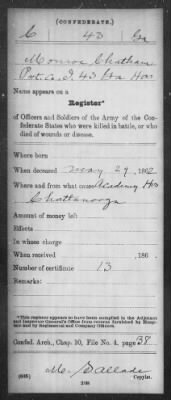 (CONFEDERATE.)
C 43 Ga
Monroe Chatham
Pvt Co. I. 43 Ga
Name appears on a
Register*
of Officers and Soldiers of the Army of the Con-
federate States who were killed in battle, or who
died of wounds or disease.
Where born
When deceased May 29, 1862
Where and from what cause Academy Hos
Chattanooga
Amount of money left
Effects
In whose charge
When received , 186 .
Number of certificate 13
Remarks:
*This register appears to have been compiled in the Adjutant
and Inspector General's Office from returns furnished by Hospi-
tals and by Regimental and Company Officers.
Confed. Arch., Chap. 10, File No. 4, page 138
M. Gallade
(635) Copyist.